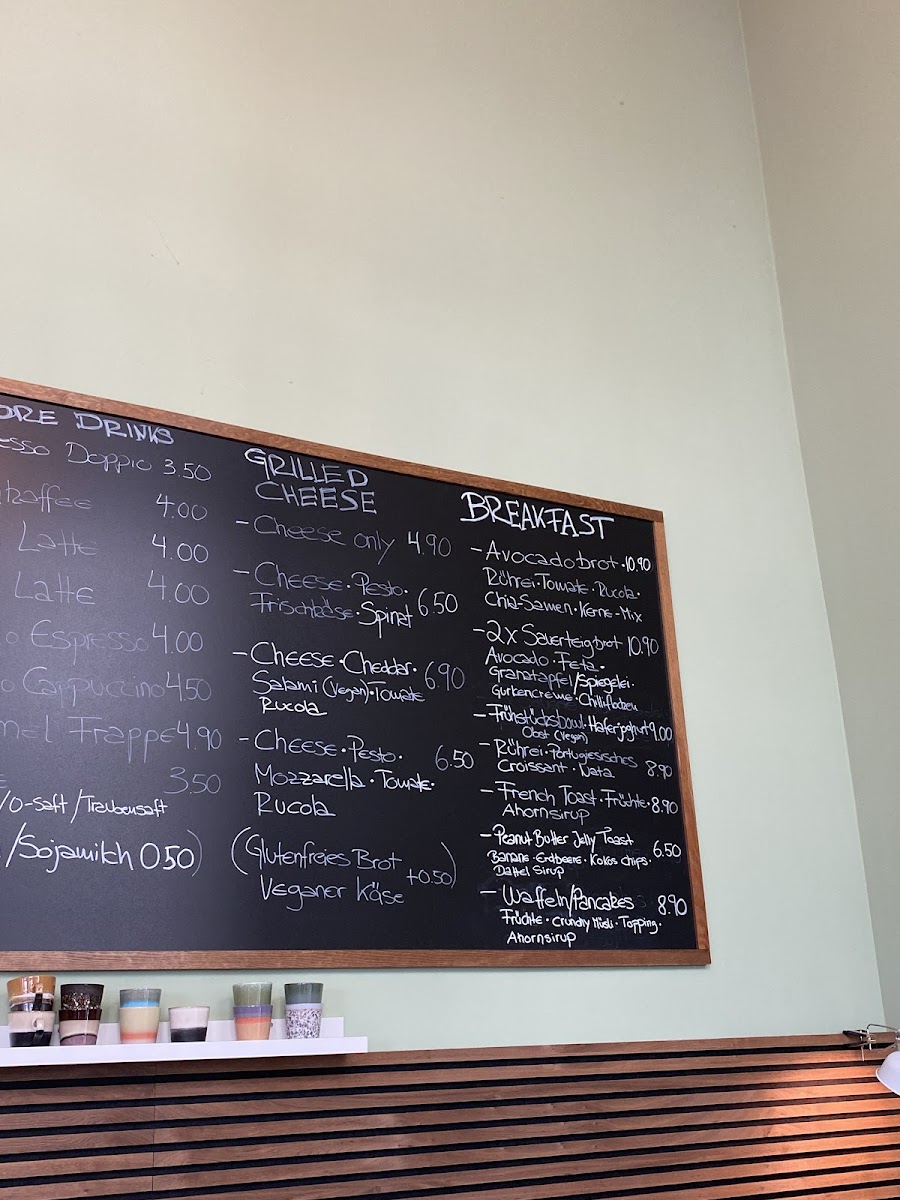 DRINKS
Doppio 3.50
4.00
Latte 4.00
Latte 4.00
Espresso 4.00
Cappuccino 4.50
Frappe 4.90
3.50
/O-Saft/Traubensaft
/Sojamilch 0.50)
GRILLED
CHEESE
- Cheese only 4.90
- Cheese · Pesto ·
Frischkäse · Spinat 6.50
- Cheese · Cheddar ·
Salami (vegan) · Tomate 6.90
Rucola
- Cheese · Pesto · 6.50
Mozzarella · Tomate ·
Rucola
(Glutenfreies Brot
Veganer Käse +0.50)
BREAKFAST
- Avocadobrot · 10.90
Rührei · Tomate · Rucola ·
Chia-Samen · Kerne-Mix
- 2x Sauerteigbrot 10.90
Avocado · Feta ·
Granatapfel/Spiegelei ·
Gurkencreme · Chilliflocken
- Frühstücksbowl · Haferjoghurt 9.00
Obst (vegan)
- Rührei · Portugiesisches
Croissant · Nata 8.90
- French Toast · Früchte · 8.90
Ahornsirup
- Peanut Butter Jelly Toast
Banane · Erdbeere · Kokos chips · 6.50
Dattel Sirup
- Waffeln/Pancakes 8.90
Früchte · Crunchy Müsli · Topping ·
Ahornsirup